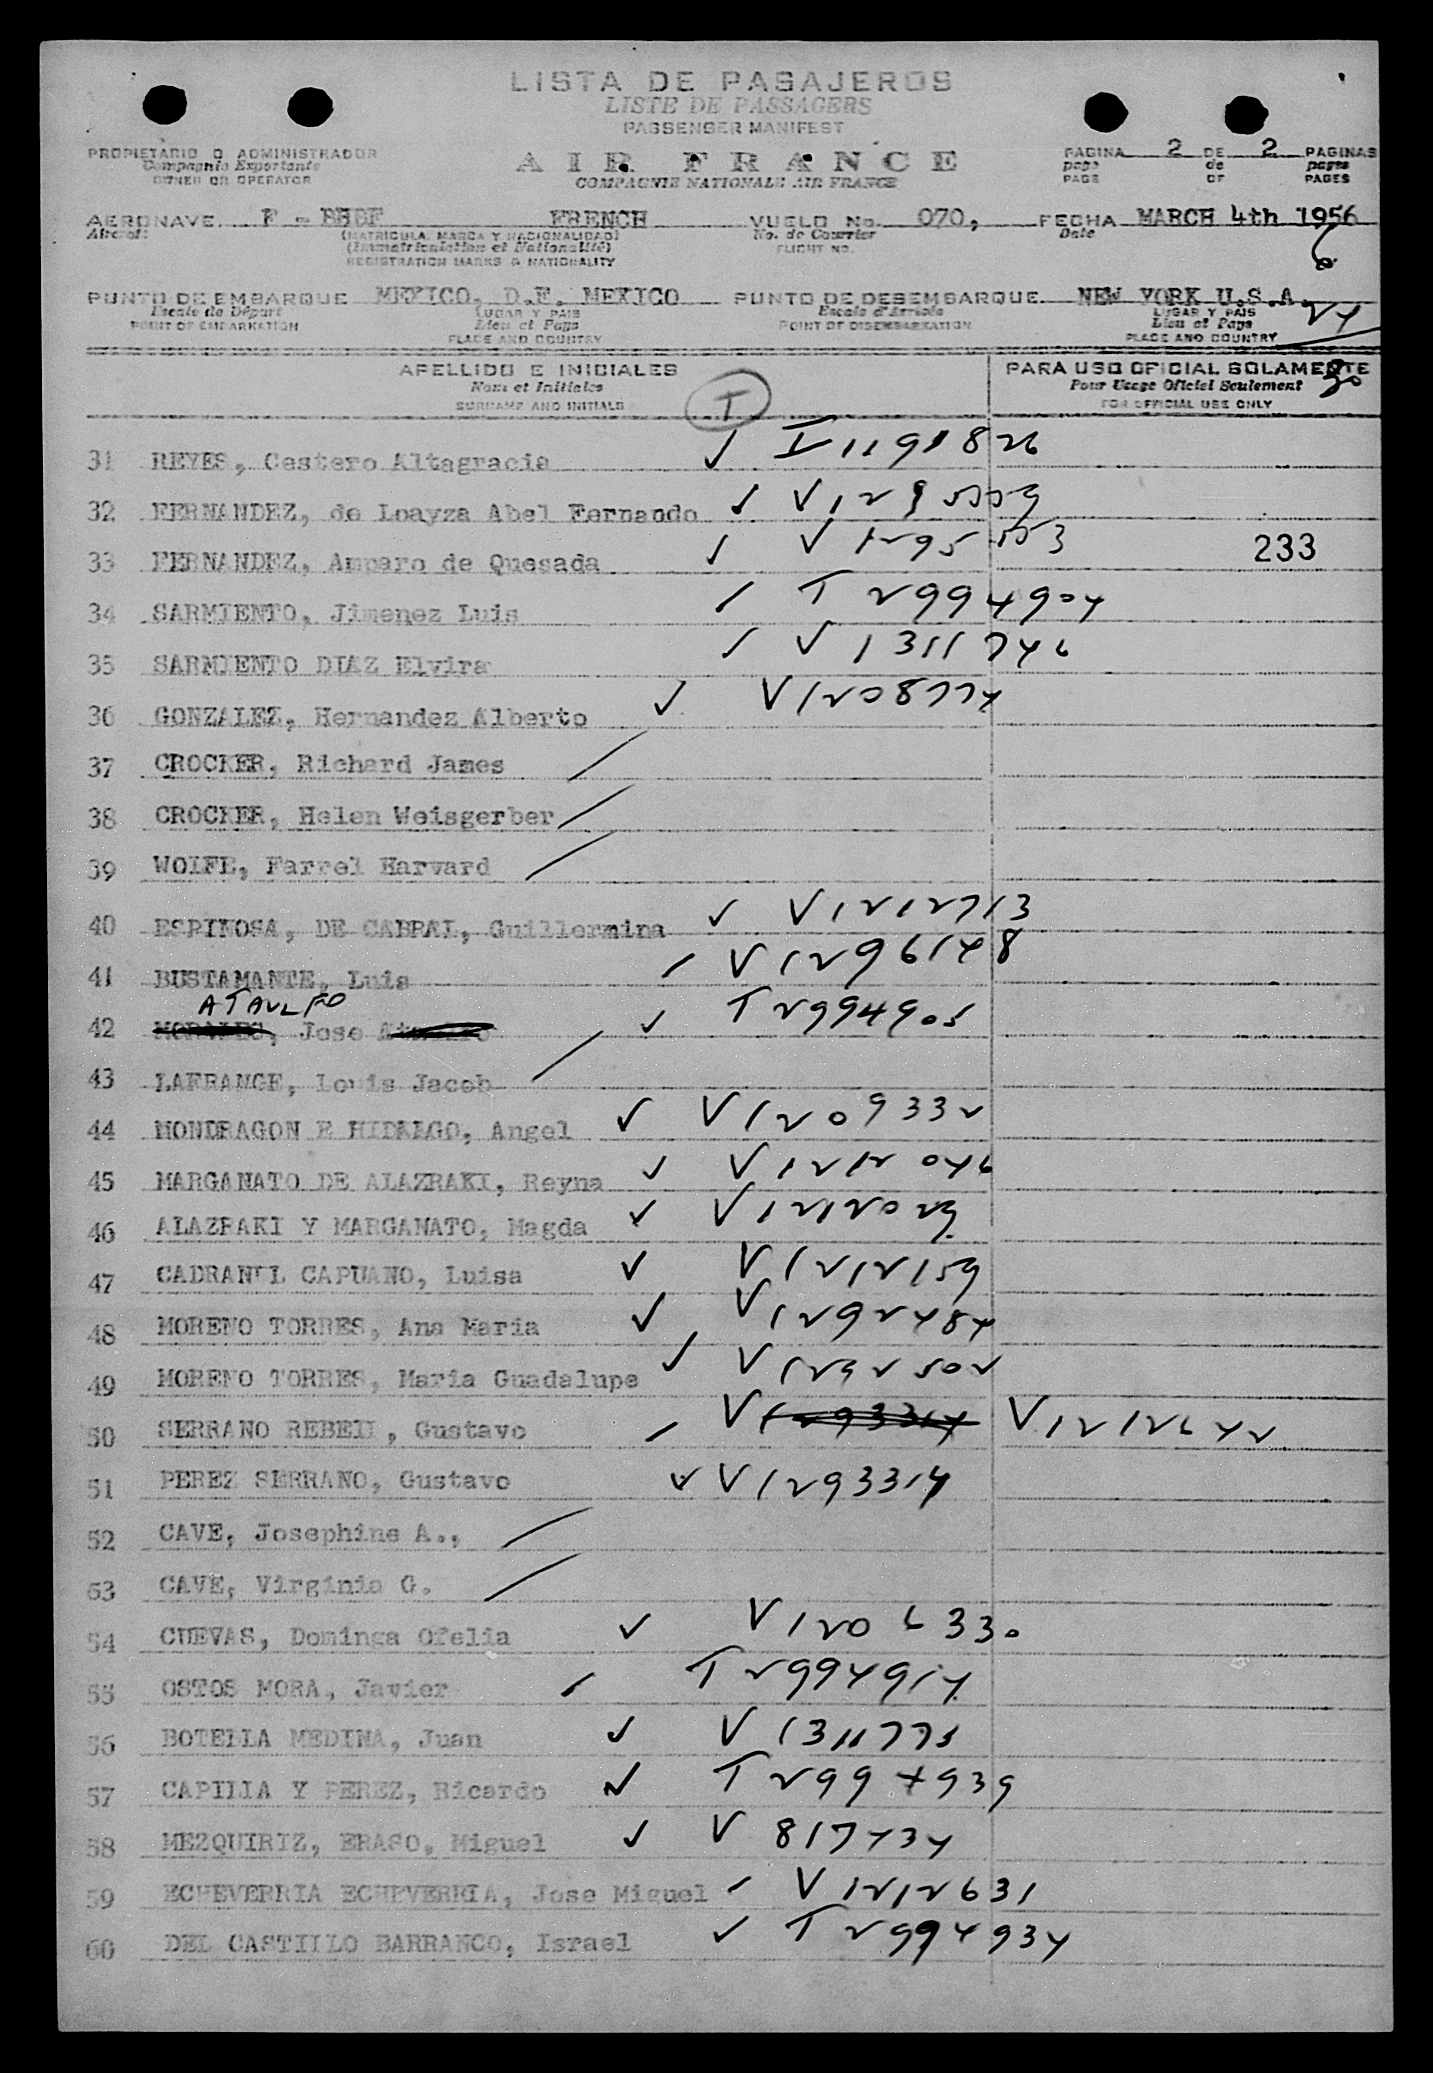 LISTA DE PASAJEROS
LISTE DE PASSAGERS
PASSENGER MANIFEST
PROPIETARIO O ADMINISTRADOR
Compagnie Exportante
OWNER OR OPERATOR
AIR FRANCE
COMPAGNIE NATIONALE AIR FRANCE
PAGINA 2 DE 2 PAGINAS
page de pages
PAGE OF PAGES
AERONAVE F - BHDF FRENCH VUELO No. 070, FECHA MARCH 4th 1956
Aircraft (MATRICULA, MARCA Y NACIONALIDAD) No. de Courrier Date
(Inmatriculation et Nationalité) FLIGHT NO.
REGISTRATION MARKS & NATIONALITY
PUNTO DE EMBARQUE MEXICO, D.F. MEXICO PUNTO DE DESEMBARQUE NEW YORK U.S.A.
Escale de Départ LUGAR Y PAIS Escale d'Arrivée LUGAR Y PAIS
POINT OF EMBARKATION Lieu et Pays POINT OF DISEMBARKATION Lieu et Pays
PLACE AND COUNTRY PLACE AND COUNTRY
24
30
APELLIDO E INICIALES PARA USO OFICIAL SOLAMENTE
Nom et Initiales Pour Usage Officiel Seulement
SURNAME AND INITIALS FOR OFFICIAL USE ONLY
T
31 REYES, Castero Altagracia ✓ I1191826
32 FERNANDEZ, de Loayza Abel Fernando ✓
33 FERNANDEZ, Amparo de Quesada ✓ V1295553 233
34 SARMIENTO, Jimenez Luis T2994904
35 SARMIENTO DIAZ Elvira V1311746
36 GONZALEZ, Hernandez Alberto ✓ V1208774
37 CROCKER, Richard James
38 CROCKER, Helen Weisgerber
39 WOLFE, Farrel Harvard
40 ESPINOSA, DE CABRAL, Guillermina ✓ V1212713
41 BUSTAMANTE, Luis V1296148
ATAULFO
42 MORALES, Jose ✓ T2994905
43 LAFRANCE, Louis Jacob
44 MONDRAGON E HIDALGO, Angel ✓ V1209332
45 MARGANATO DE ALAZRAKI, Reyna ✓ V1212046
46 ALAZRAKI Y MARGANATO, Magda ✓ V1212029
47 CADRANEL CAPUANO, Luisa ✓ V1212159
48 MORENO TORRES, Ana Maria ✓ V1292484
49 MORENO TORRES, Maria Guadalupe ✓ V1292502
50 SERRANO REBEIL, Gustavo V1293314 V1212642
51 PEREZ SERRANO, Gustavo ✓ V1293314
52 CAVE, Josephine A.,
53 CAVE, Virginia G.
54 CUEVAS, Dominga Ofelia ✓ V1206330
55 OSTOS MORA, Javier T2994914
56 BOTELLA MEDINA, Juan ✓ V1311775
57 CAPILLA Y PEREZ, Ricardo ✓ T2994939
58 MEZQUIRIZ, ERASO, Miguel ✓ V817434
59 ECHEVERRIA ECHEVERRIA, Jose Miguel V1212631
60 DEL CASTILLO BARRANCO, Israel ✓ T2994934